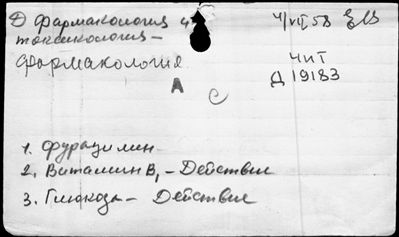 Д фармакология и
токсикология —
Фармакология
4/VII 58
Чит
Д 19183
А
С
1. Фурацилин
2. Витамин В₁ — Действие
3. Глюкоза — Действие